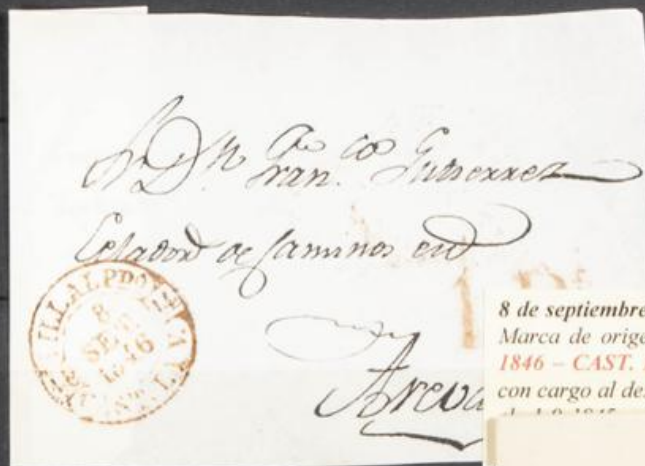 Sr. Dn. Franco. Gutierrez
Celador de Caminos en
Areva
VILLALPDO
8
SET
1846
8 de septiembre
Marca de orige
1846 – CAST.
con cargo al de